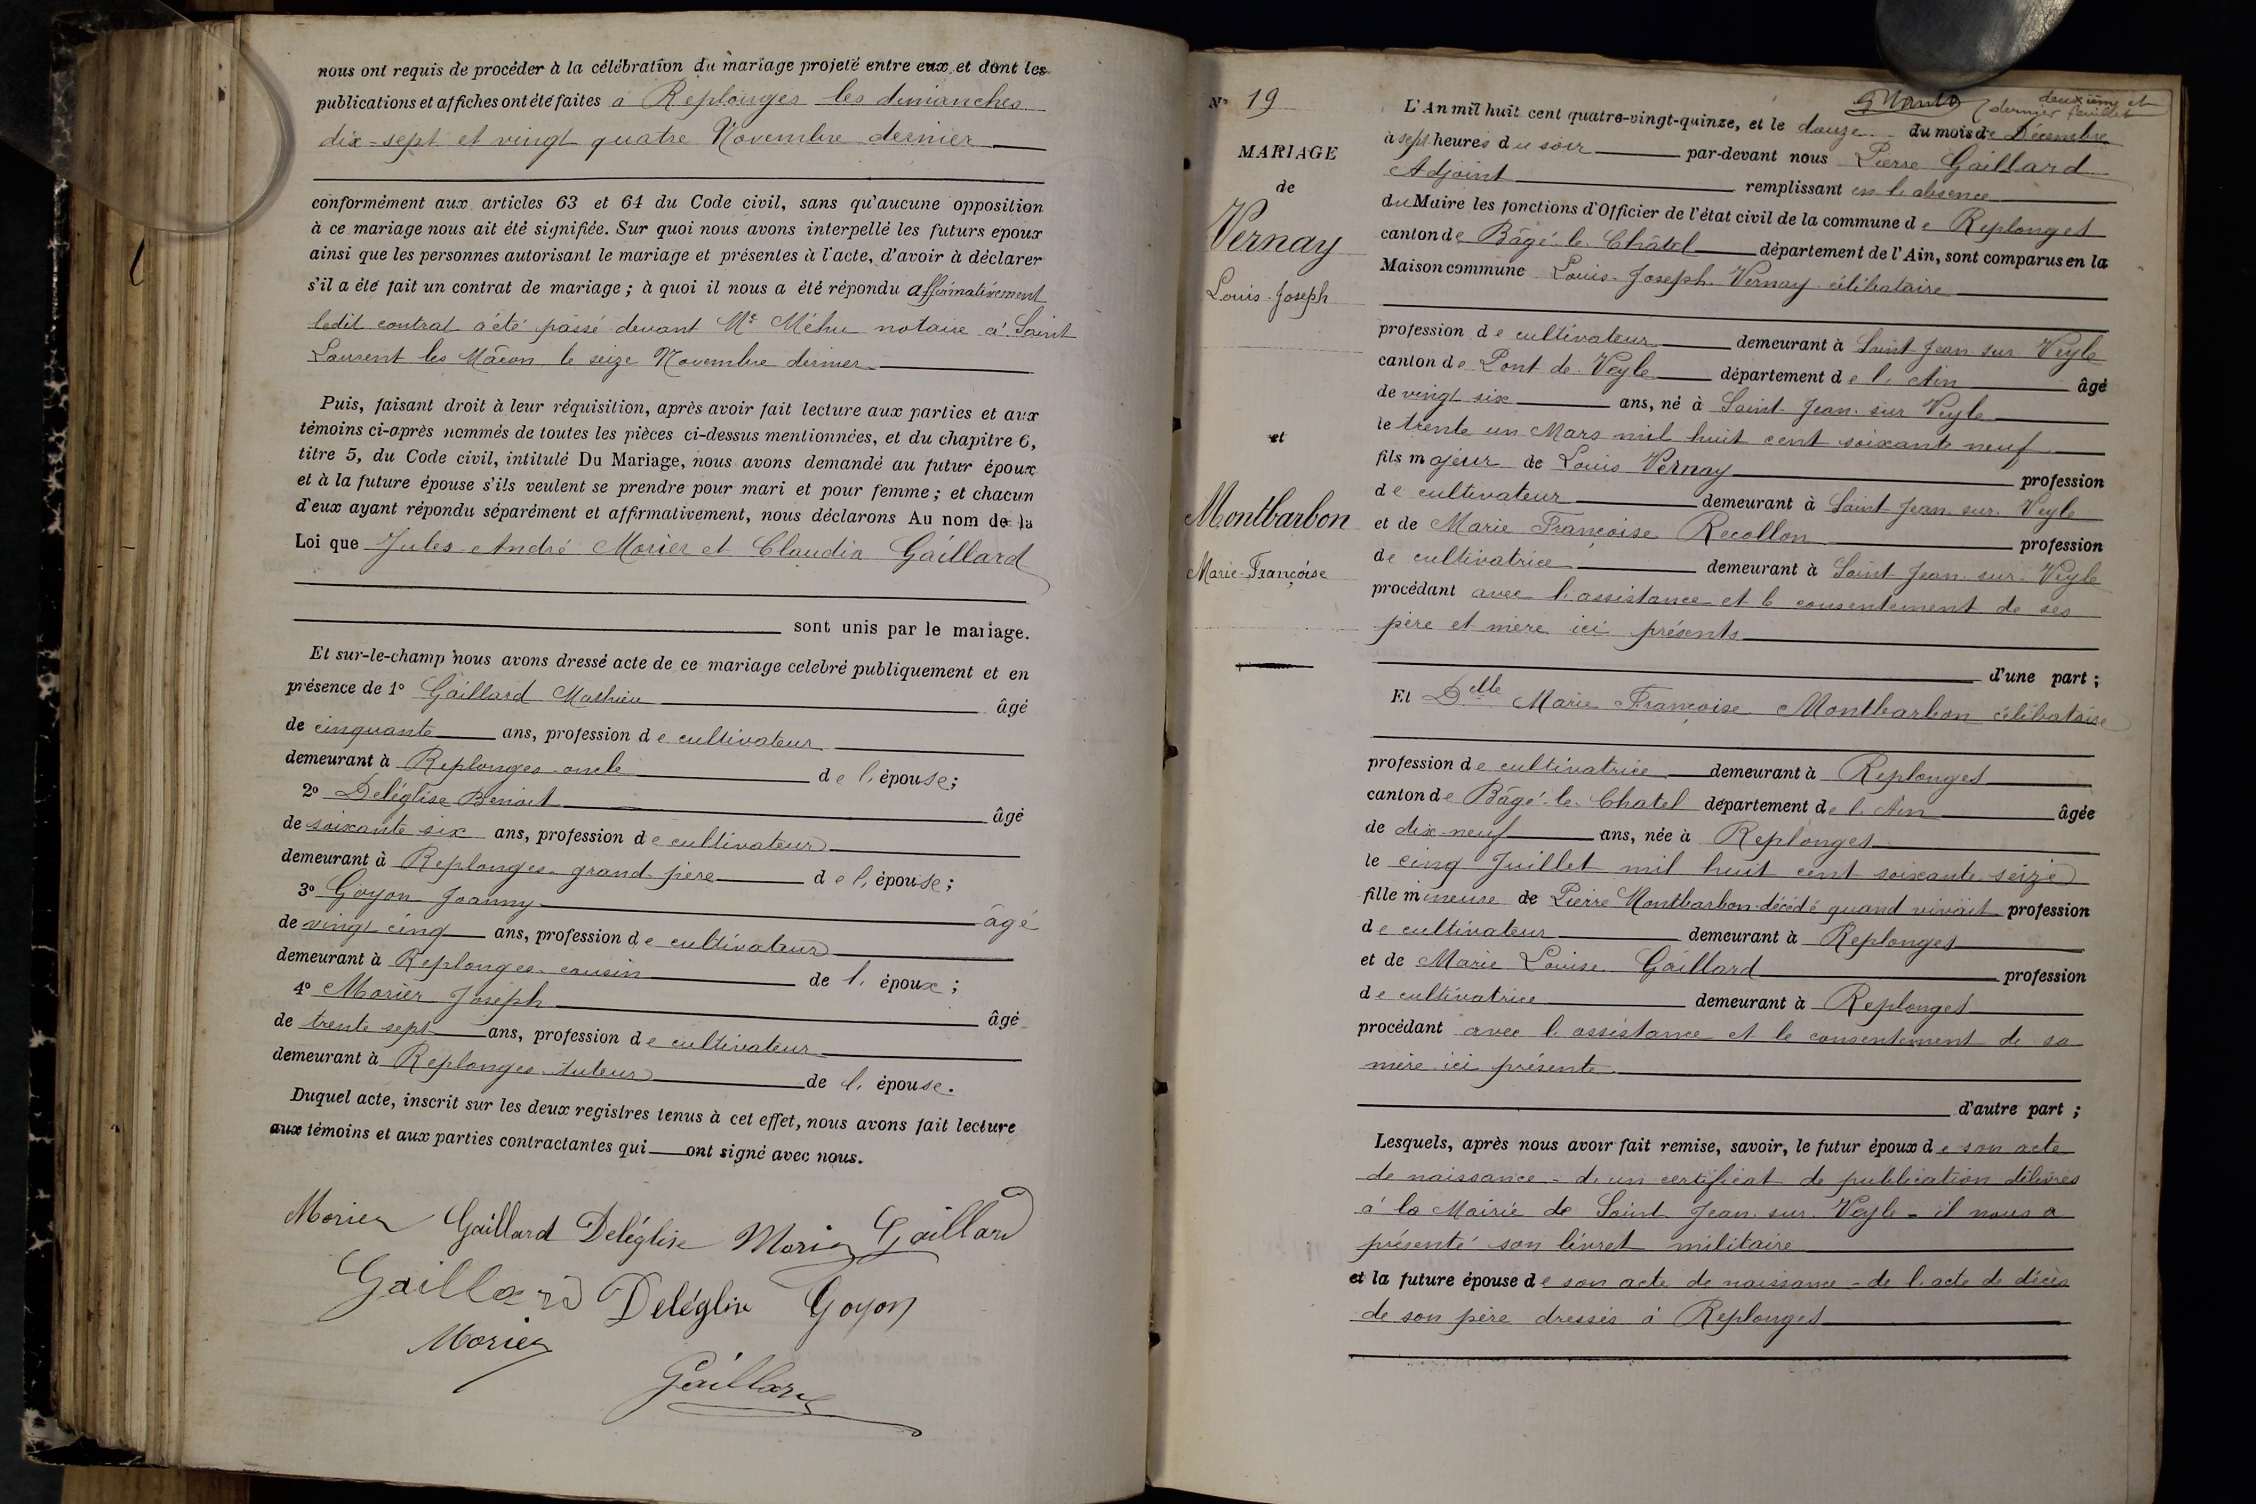 nous ont requis de procéder à la célébration du mariage projeté entre eux et dont les
publications et affiches ont été faites à Replonges les dimanches
dix-sept et vingt quatre Novembre dernier
conformément aux articles 63 et 64 du Code civil, sans qu'aucune opposition
à ce mariage nous ait été signifiée. Sur quoi nous avons interpellé les futurs époux
ainsi que les personnes autorisant le mariage et présentes à l'acte, d'avoir à déclarer
s'il a été fait un contrat de mariage ; à quoi il nous a été répondu affirmativement
ledit contrat a été passé devant Me Méhu notaire à Saint
Laurent les Mâcon le seize Novembre dernier
Puis, faisant droit à leur réquisition, après avoir fait lecture aux parties et aux
témoins ci-après nommés de toutes les pièces ci-dessus mentionnées, et du chapitre 6,
titre 5, du Code civil, intitulé Du Mariage, nous avons demandé au futur époux
et à la future épouse s'ils veulent se prendre pour mari et pour femme ; et chacun
d'eux ayant répondu séparément et affirmativement, nous déclarons Au nom de la
Loi que Jules André Morier et Claudia Gaillard
sont unis par le mariage.
Et sur-le-champ nous avons dressé acte de ce mariage célébré publiquement et en
présence de 1° Gaillard Mathieu âgé
de cinquante ans, profession de cultivateur
demeurant à Replonges oncle de l'épouse ;
2° Deléglise Benoit âgé
de soixante six ans, profession de cultivateur
demeurant à Replonges grand-père de l'épouse ;
3° Goyon Joanny âgé
de vingt cinq ans, profession de cultivateur
demeurant à Replonges cousin de l'époux ;
4° Morier Joseph âgé
de trente sept ans, profession de cultivateur
demeurant à Replonges tuteur de l'épouse.
Duquel acte, inscrit sur les deux registres tenus à cet effet, nous avons fait lecture
aux témoins et aux parties contractantes qui ont signé avec nous.
Morier Gaillard Deléglise Morier Gaillard
Gaillard Deléglise Goyon
Morier
Gaillard
deuxième et
dernier feuillet
N° 19
MARIAGE
de
Vernay
Louis-Joseph
et
Montbarbon
Marie-Françoise
L'An mil huit cent quatre-vingt-quinze, et le douze du mois de Décembre
à sept heures du soir par-devant nous Pierre Gaillard
Adjoint remplissant en l'absence
du Maire les fonctions d'Officier de l'état civil de la commune de Replonges
canton de Bâgé-le-Châtel département de l'Ain, sont comparus en la
Maison commune Louis-Joseph Vernay célibataire
profession de cultivateur demeurant à Saint-Jean sur Veyle
canton de Pont de Veyle département de l'Ain âgé
de vingt six ans, né à Saint-Jean sur Veyle
le trente un Mars mil huit cent soixante neuf
fils majeur de Louis Vernay profession
de cultivateur demeurant à Saint Jean sur Veyle
et de Marie Françoise Recollon profession
de cultivatrice demeurant à Saint Jean sur Veyle
procédant avec l'assistance et le consentement de ses
père et mère ici présents
d'une part ;
Et Delle Marie Françoise Montbarbon célibataire
profession de cultivatrice demeurant à Replonges
canton de Bâgé-le-Chatel département de l'Ain âgée
de dix-neuf ans, née à Replonges
le cinq Juillet mil huit cent soixante seize
fille mineure de Pierre Montbarbon décédé quand vivait profession
de cultivateur demeurant à Replonges
et de Marie Louise Gaillard profession
de cultivatrice demeurant à Replonges
procédant avec l'assistance et le consentement de sa
mère ici présente
d'autre part ;
Lesquels, après nous avoir fait remise, savoir, le futur époux de son acte
de naissance - d'un certificat de publication délivrés
à la Mairie de Saint Jean sur Veyle - il nous a
présenté son livret militaire
et la future épouse de son acte de naissance - de l'acte de décès
de son père dressés à Replonges